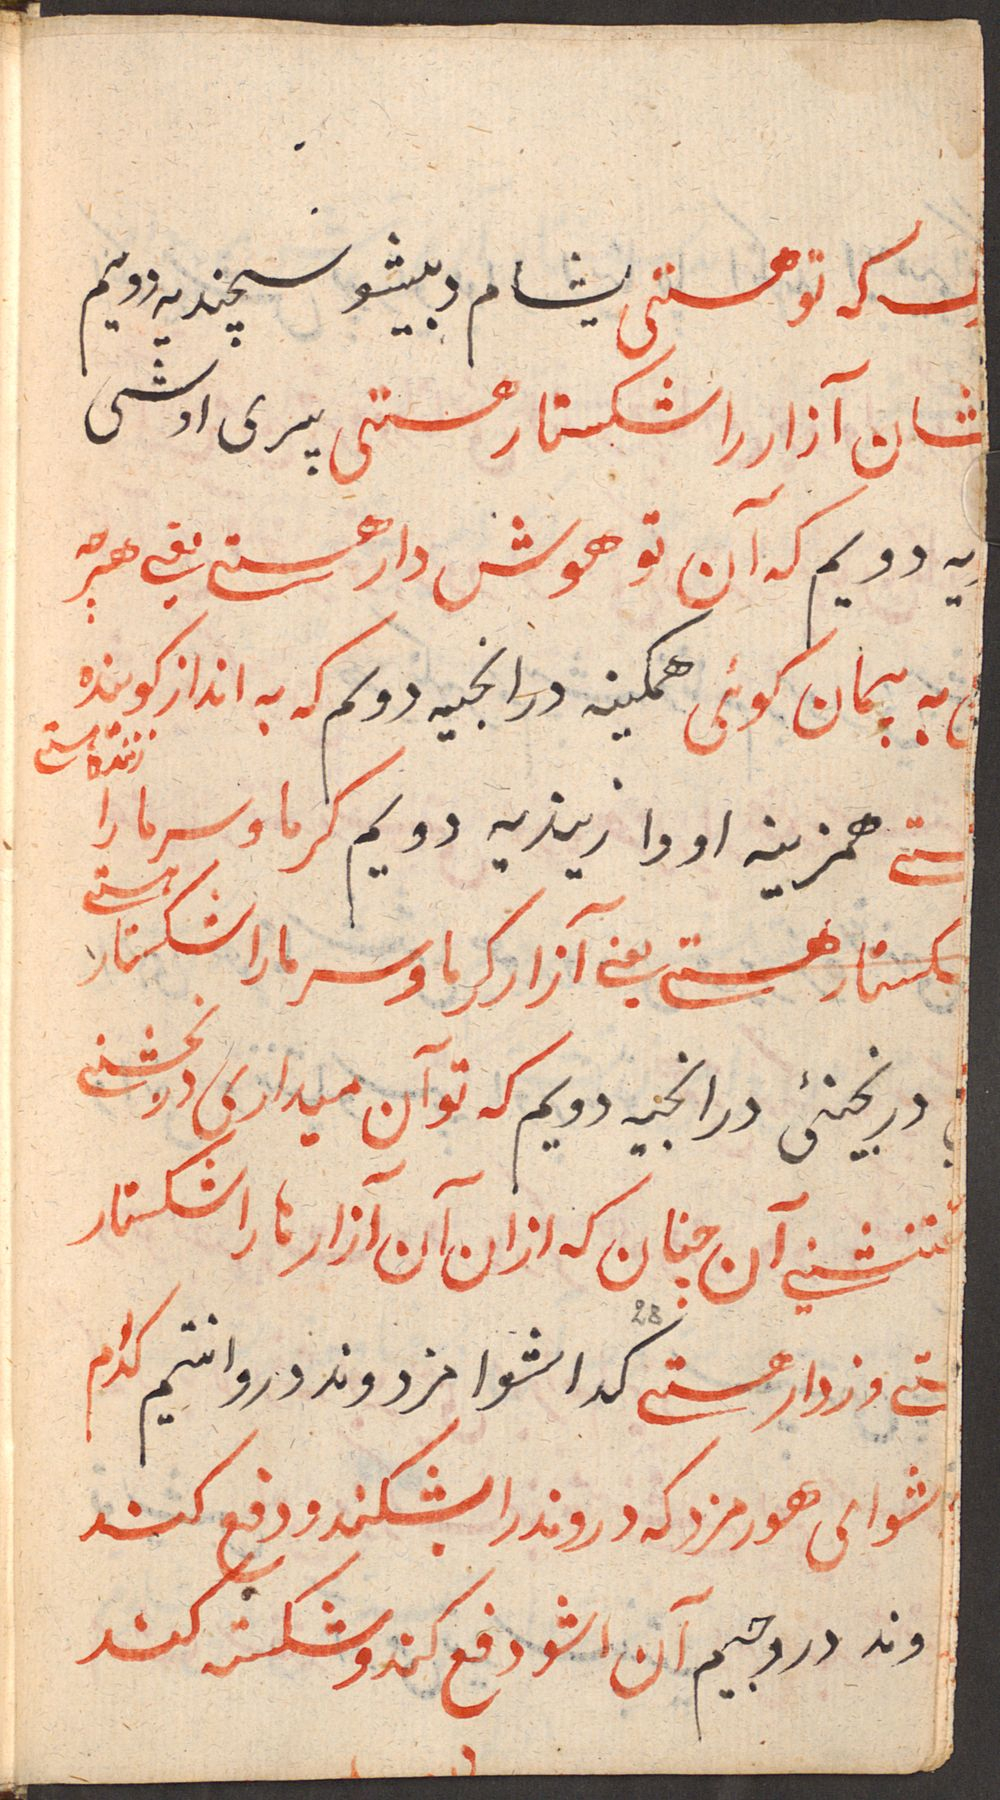 که تو هستی یشام دبیشو سچندیه دویم
شان آزار را شکستار هستی پیری اوشی
یه دویم که آن تو هوش دار هستے یعنی هرچه
به پیمان کوئی همکینه درانجیه دویم که به انداز کوینده
زننده هستے
ستے همزینه اووا زیندیه دویم کرما و سرما را
هستے
شکستار هستے یعنے آزار کرما و سرما را شکستار
درنجنئ درانجیه دویم که تو آن میداری درنجشنے
شنے آن چنان که ازان آن آزارها را شکستار
28
ستے و زدار هستے کدا اشوا مزدوند دروانتیم کدام
اشوای هورمزد که دروند را بشکند و دفع کند
وند دروجیم آن اشو دفع کند و شکسته کند